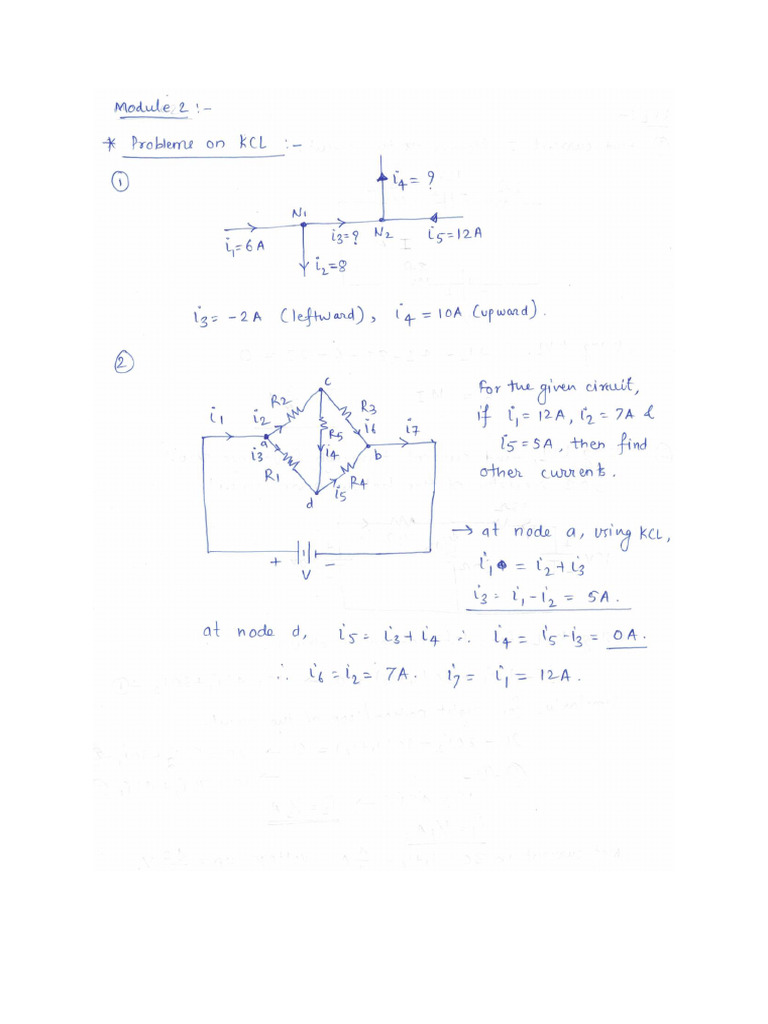 Module 2 :-
* Probleme on KCL :-
①
i4 = ?
N1
i1=6A
i3=?
N2
i5=12A
i2=8
i3= -2A (leftward), i4 = 10A (upward).
②
c
R2
R3
i1
i2
i6
i7
R5
a
i3
i4
b
R1
R4
i5
d
+
V
-
For the given circuit,
if i1=12A, i2=7A &
i5=5A, then find
other currents.
→ at node a, using KCL,
i1 = i2+i3
i3= i1-i2 = 5A.
at node d, i5= i3+i4 ∴ i4= i5-i3= 0A.
∴ i6=i2= 7A. i7= i1 = 12A.